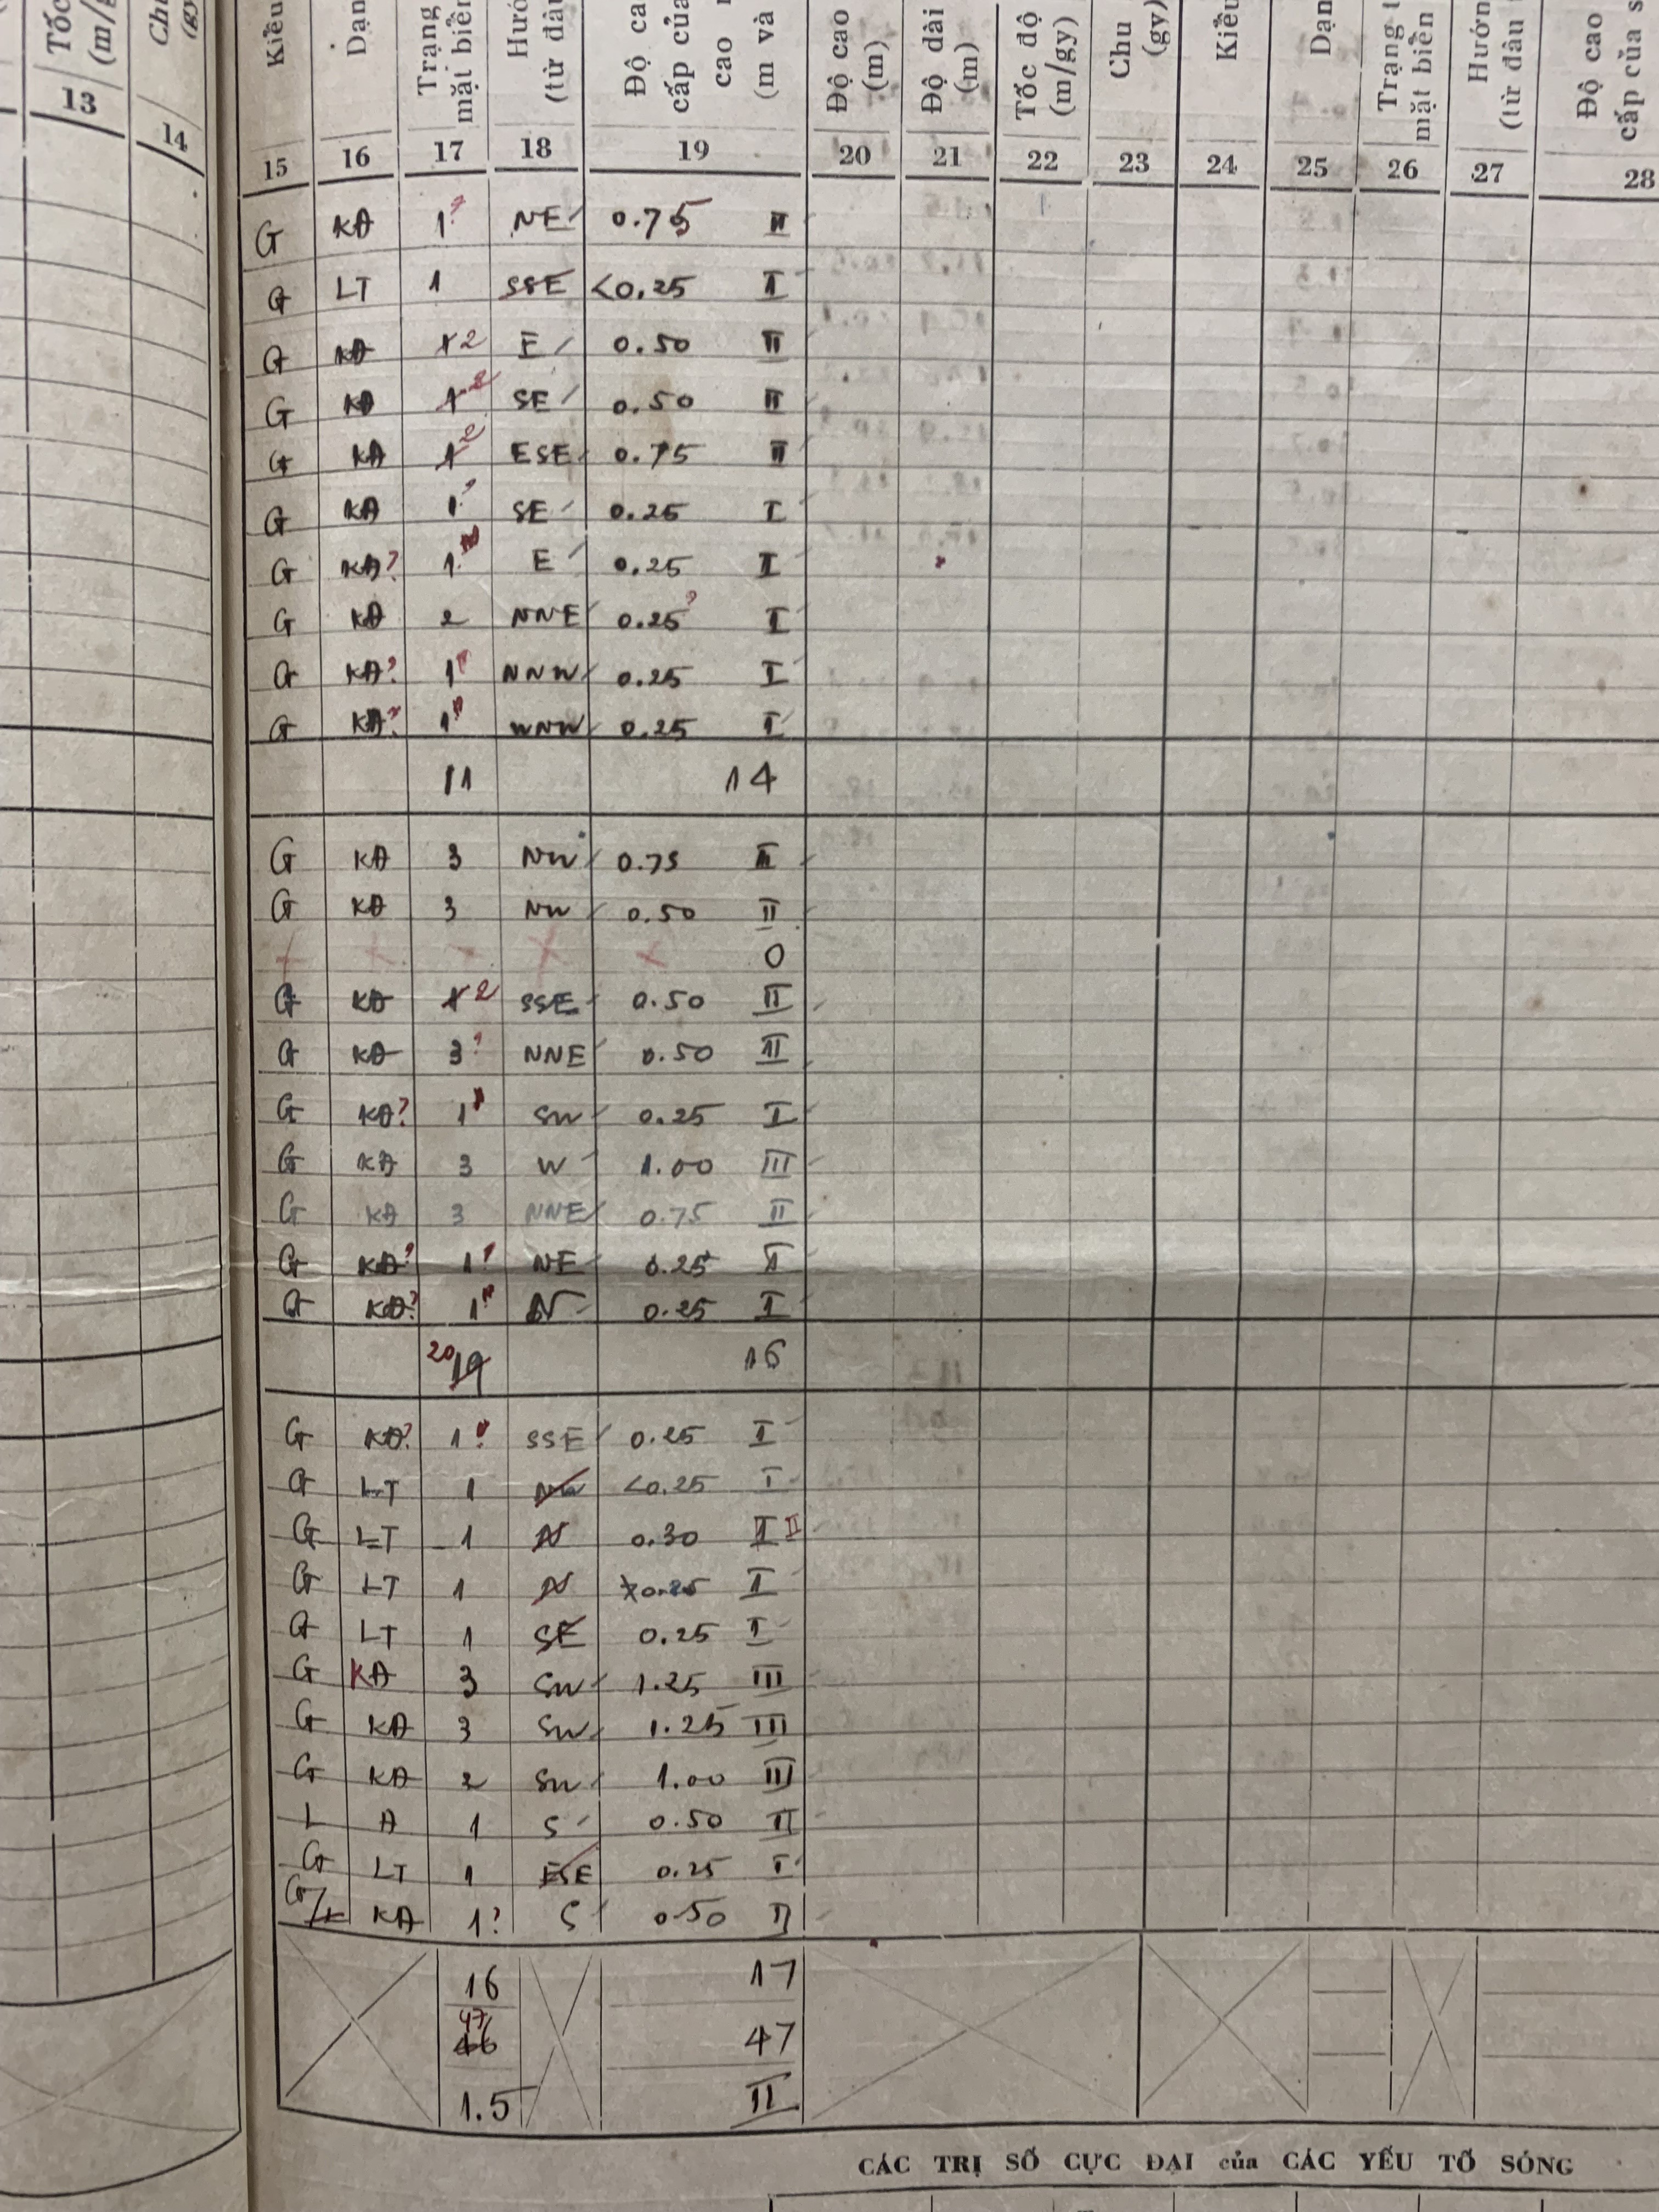 Tốc
(m/g
Kiểu
Dạn
Trạng
mặt biển
Hướ
(từ đâu
Độ ca
cấp của
cao
(m và
Độ cao
(m)
Độ dài
(m)
Tốc độ
(m/gy)
Chu
(gy)
Kiểu
Dạn
Trạng t
mặt biển
Hướn
(từ đâu
Độ cao
cấp của s
13 14 15 16 17 18 19 20 21 22 23 24 25 26 27 28
G KĐ 1? NE 0.75 II
G LT 1 SSE <0.25 I
G KĐ 1 2 E 0.50 II
G KĐ 1 2 SE 0.50 II
G KĐ 1 2 ESE 0.75 II
G KĐ 1? SE 0.25 I
G KĐ? 1 E 0.25 I
G KĐ 2 NNE 0.25? I
G KĐ? 1? NNW 0.25 I
G KĐ? 1? WNW 0.25 I
11 14
G KĐ 3 NW 0.75 II
G KĐ 3 NW 0.50 II
× × - × × 0
G KĐ 1 2 SSE 0.50 II
G KĐ 3? NNE 0.50 II
G KĐ? 1? SW 0.25 I
G KĐ 3 W 1.00 III
G KĐ 3 NNE 0.75 II
G KĐ? 1? NE 0.25 I
G KĐ? 1? N 0.25 I
20 19 16
G KĐ? 1? SSE 0.25 I
G LT 1 NW <0.25 I
G LT 1 N 0.30 I II
G LT 1 N 0.25 I
G LT 1 SE 0.25 I
G KĐ 3 SW 1.25 III
G KĐ 3 SW 1.25 III
G KĐ 2 SW 1.00 III
L A 1 S 0.50 II
G LT 1 ESE 0.25 I
G/L KĐ 1? S 0.50 II
16 17
47 46 47
1.5 II
CÁC TRỊ SỐ CỰC ĐẠI của CÁC YẾU TỐ SÓNG